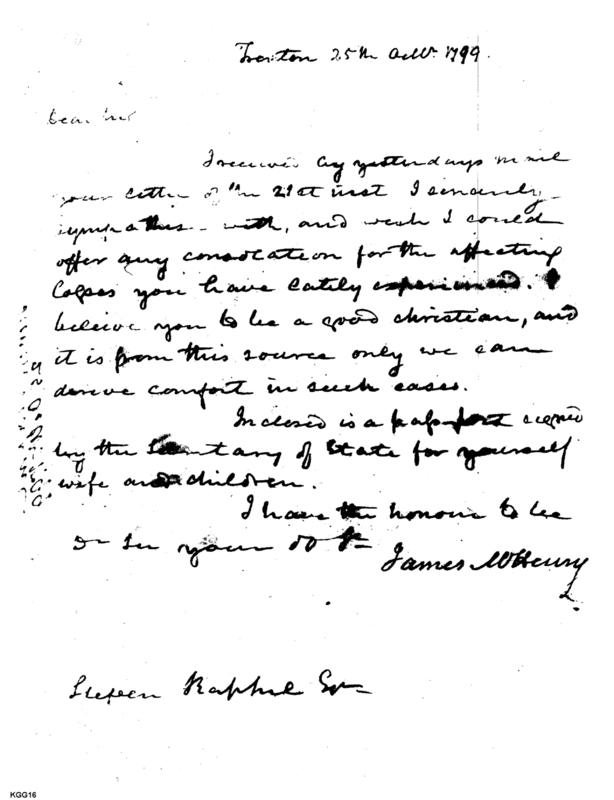 Trenton 25th Octbr. 1799.
Dear Sir
I received by yesterdays mail
your letter of the 21st inst I sincerely
sympathise with, and wish I could
offer any consolation for the affecting
losses you have lately experienced. I
believe you to be a good christian, and
it is from this source only we can
derive comfort in such cases.
Inclosed is a passport signed
by the Secretary of State for yourself
wife and children.
I have the honour to be
Dr Sir your Ob St
James McHenry
Stephen Raphel Esqr
KGG16